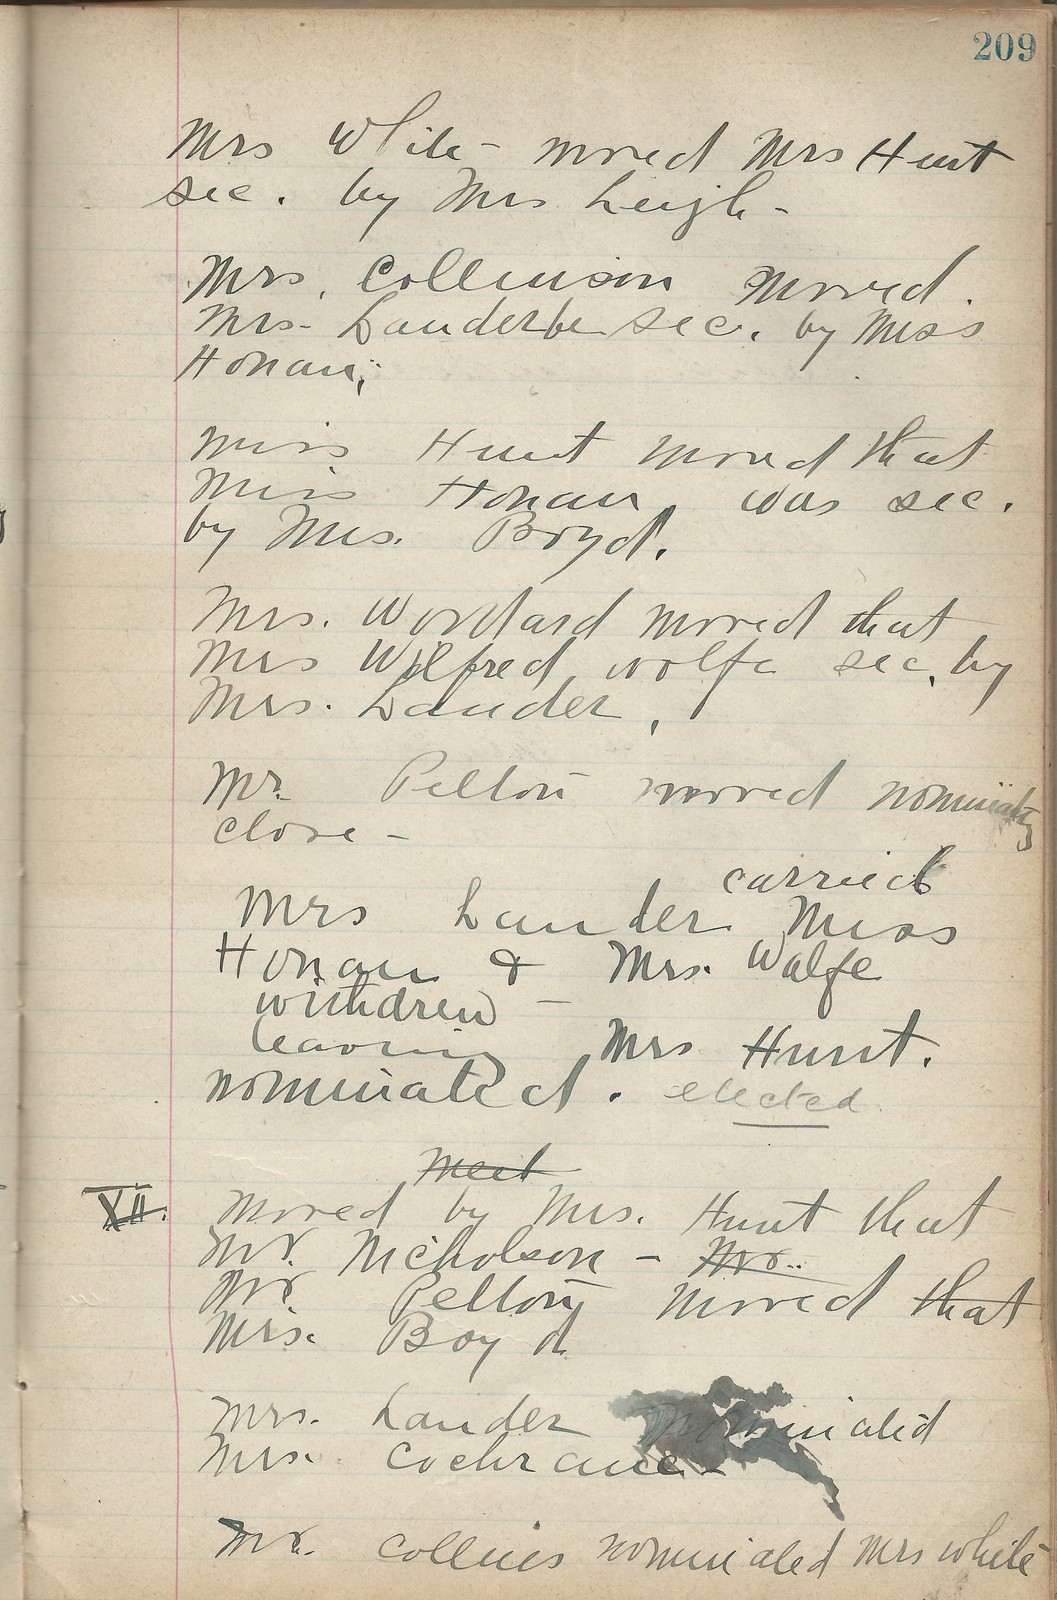 209
Mrs White - moved Mrs Hunt
sec. by Mrs Leigh -
Mrs. Collinson moved.
Mrs. Lander sec. by Miss
Honan;
Miss Hunt moved that
Miss Honan, was sec.
by Mrs. Boyd.
Mrs. moved that
Mrs Wilfred Wolfe sec. by
Mrs. Lander,
Mr. Pelton moved
close -
carried
Mrs Lander Miss
Honan & Mrs. Walfe
withdrew -
leaving Mrs Hunt.
nominated. elected
Meet
VII. moved by Mrs. Hunt that
Mr. Nicholson - Mr.
Mr Pelton moved that
Mrs. Boyd
Mrs. Lander nominated
Mrs. Cochrane -
Mr. Collins nominated Mrs White